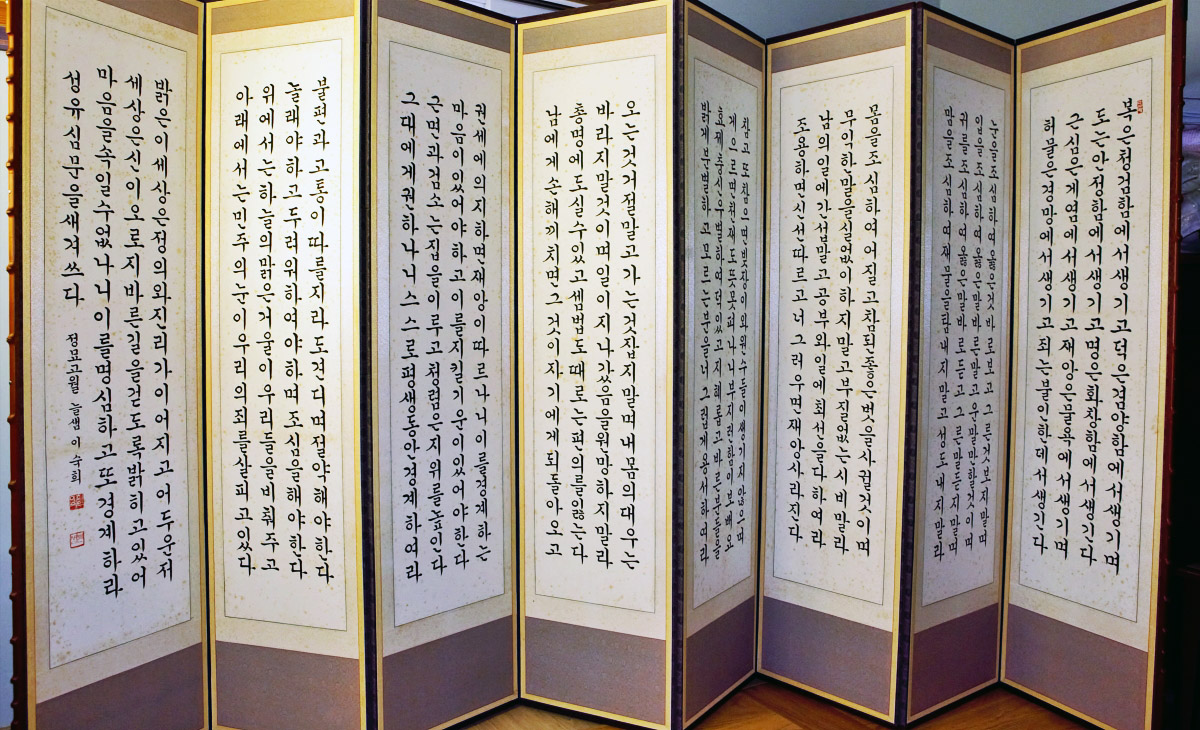 복은청검함에서생기고덕은겸양함에서생기며
도는안정함에서생기고명은화창함에서생긴다
근심은게염에서생기고재앙은물욕에서생기며
허물은경망에서생기고죄는불인한데서생긴다
눈을조심하여옳은것바로보고그른것보지말며
입을조심하여옳은말바른말고운말만할것이며
귀를조심하여옳은말바로듣고그른말듣지말며
맘을조심하여재물을탐내지말고성도내지말라
몸을조심하여어질고참되좋은벗을사귈것이며
무익한말을실없이하지말고부질없는시비말라
남의일에간섭말고공부와일에최선을다하여라
조용하면신선따르고너그러우면재앙사라진다
참고또참으면빚장이와원수들이생기지않으며
게으르면천재도뜻못펴나니부지런함이보배요
효제충신우별하여덕있고지혜롭고바른분들을
밝게분별하고모르는분을너그럽게용서하여라
오는것거절말고가는것잡지말며내몸의대우는
바라지말것이며일이지나갔음을원망하지말라
총명에도실수있고셈법도때로는편의를잃는다
남에게손해끼치면그것이자기에게되돌아오고
권세에의지하면재앙이따르나니이를경계하는
마음이있어야하고이를지킬기운이있어야한다
근면과검소는집을이루고청렴은지위를높인다
그대에게권하나니스스로평생동안경계하여라
불편과고통이따를지라도견디며절약해야한다
놀래야하고두려워하여야하며조심을해야한다
위에서는하늘의맑은거울이우리들을비춰주고
아래에서는민주의눈이우리의죄를살피고있다
밝은이세상은정의와진리가이어지고어두운저
세상은신이오로지바른길을걷도록밝히고있어
마음을속일수없나니이를명심하고또경계하라
성유심문을새겨쓰다 정묘고월 늘샘 이숙희